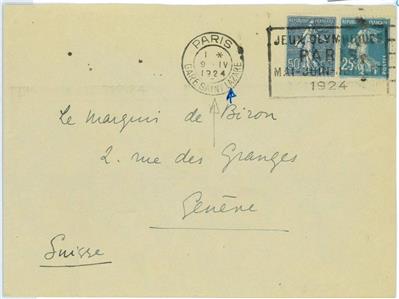 PARIS
1 *
9 - IV
1924
GARE SAINT-LAZARE
JEUX OLYMPIQUES
PARIS
MAI-JUIN
1924
50
25
Le Marquis de Biron
2. rue des Granges
Genève
Suisse